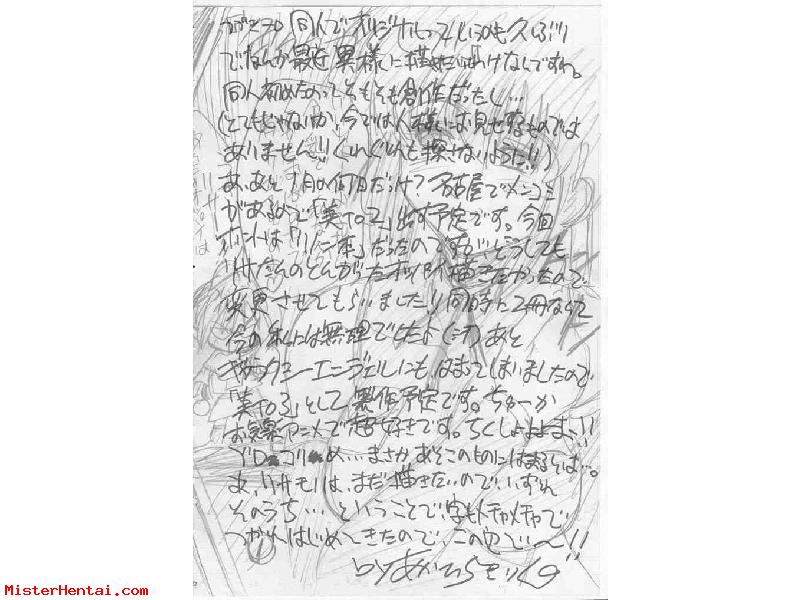 同人でオリジナルっていうのも久しぶり
でなんか最近異様に描きたいわけなんですわ。
同人初めたのってそもそも創作だったし…
(とてもじゃないが、今では人様にお見せするものでは
ありません!!くれぐれも探さないように!!)
あ、あと1月の何日だっけ?名古屋でメンコミ
があるので「美to2」出す予定です。今回
ホントは「リノン本」だったのですがどうしても
たんのとんがったオッパイ描きたかったので
変更させてもらいました!)同時に2冊なんて
今の私には無理でしたよ(汗)あと
ギャラクシーエンジェルにもはまってしまいましたので
「美to3」として製作予定です。ちゅーか
お笑アニメで超好きです。ちくしょおおお、!!
め…まさかあそこのものにはまるとは…。
あ、はまだ描きたいので、いずれ
そのうち…ということで、字もメチャメチャで
つかれはじめてきたので、この辺で〜!!
by
MisterHentai.com